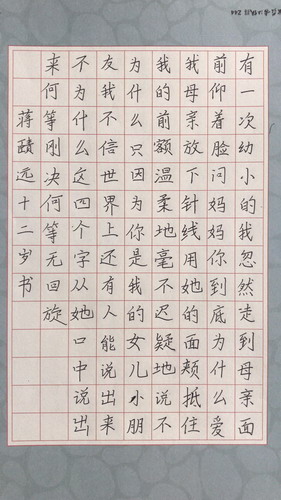 有一次幼小的我忽然走到母亲面
前仰着脸问妈妈你到底为什么爱
我母亲放下针线用她的面颊抵住
我的前额温柔地毫不迟疑地说不
为什么只因为你是我的女儿小朋
友我不信世界上还有人能说出来
不为什么这四个字从她口中说出
来何等刚决何等无回旋
蒋远十二岁书